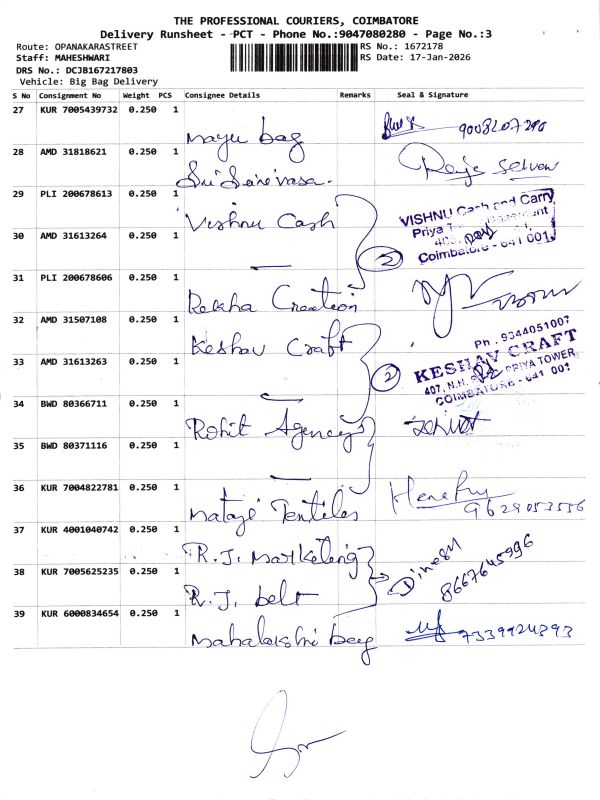 THE PROFESSIONAL COURIERS, COIMBATORE
Delivery Runsheet - PCT - Phone No.:9047080280 - Page No.:3
Route: OPANAKARASTREET RS No.: 1672178
Staff: MAHESHWARI RS Date: 17-Jan-2026
DRS No.: DCJB167217803
Vehicle: Big Bag Delivery
S No Consignment No Weight PCS Consignee Details Remarks Seal & Signature
27 KUR 7005439732 0.250 1 Mayu bag
28 AMD 31818621 0.250 1 Sri Srinivasa.
29 PLI 200678613 0.250 1 Vishnu Cash VISHNU Cash and Carry
30 AMD 31613264 0.250 1 — 2 Coimbatore - 641 001.
31 PLI 200678606 0.250 1 Rekha Creation
32 AMD 31507108 0.250 1 Keshav Craft Ph. 9344051007
33 AMD 31613263 0.250 1 — 2 KESHAV CRAFT
407, N.H. PRIYA TOWER
COIMBATORE - 641 001
34 BWD 80366711 0.250 1 Rohit Agencys
35 BWD 80371116 0.250 1 —
36 KUR 7004822781 0.250 1 Mataji Textiles 9629053556
37 KUR 4001040742 0.250 1 R.J. Marketing Dinesh
38 KUR 7005625235 0.250 1 R.J. belt 8667645996
39 KUR 6000834654 0.250 1 Mahalakshmi bag